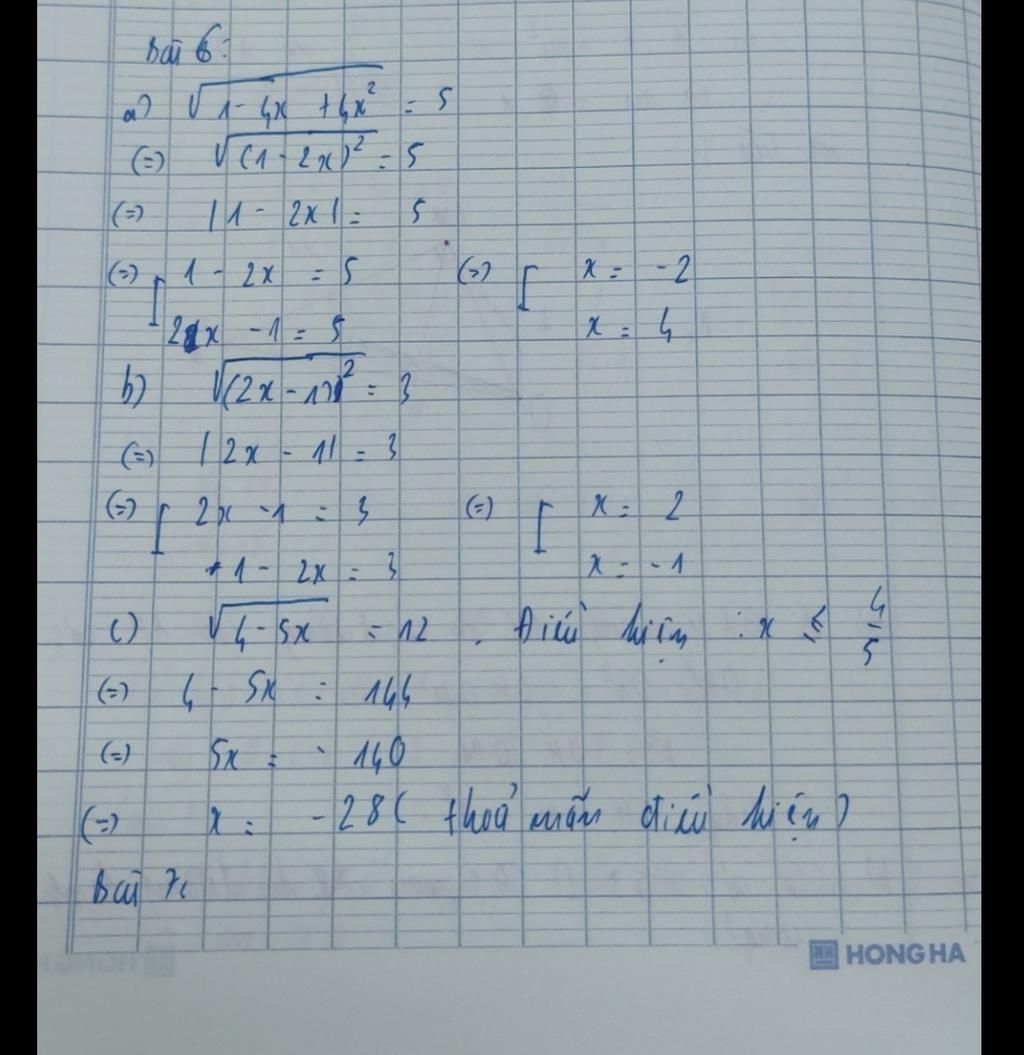 Bài 6:
a) √(1 - 4x + 4x²) = 5
(=) √((1 - 2x)²) = 5
(=) |1 - 2x| = 5
(=) [ 1 - 2x = 5 (=) [ x = -2
2x - 1 = 5 x = 4
b) √((2x - 1)²) = 3
(=) |2x - 1| = 3
(=) [ 2x - 1 = 3 (=) [ x = 2
1 - 2x = 3 x = -1
c) √(4 - 5x) = 12 . Điều kiện : x ≤ 4/5
(=) 4 - 5x = 144
(=) 5x = - 140
(=) x = -28 ( thoả mãn điều kiện )
Bài 7:
HONG HA